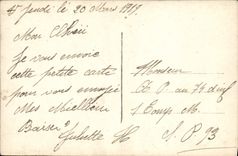 Jeudi le 20 Mars 1919.
Mon Chéri
Je vous envoie
cette petite carte
pour vous envoyer
Mes Meilleurs
Baisers
Juliette
Monsieur
au 74 d'inf
S. P. 93